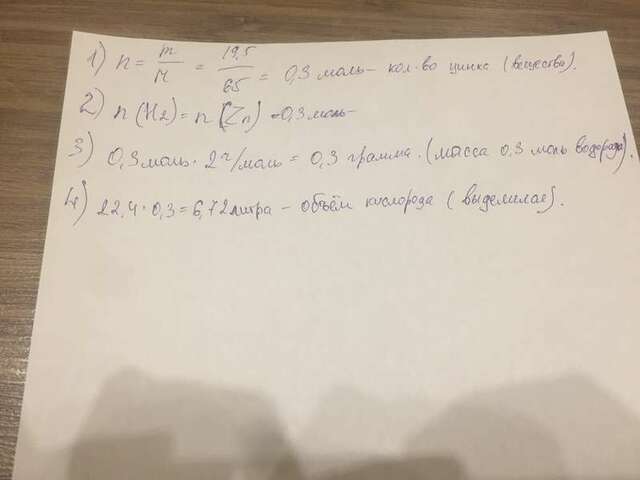 1) n = m/M = 19,5/65 = 0,3 моль - кол-во цинка (вещества).
2) n (H2) = n (Zn) = 0,3 моль
3) 0,3 моль · 2 г/моль = 0,3 грамма. (масса 0,3 моль водорода).
4) 22,4 · 0,3 = 6,72 литра - объём кислорода (выделилас).